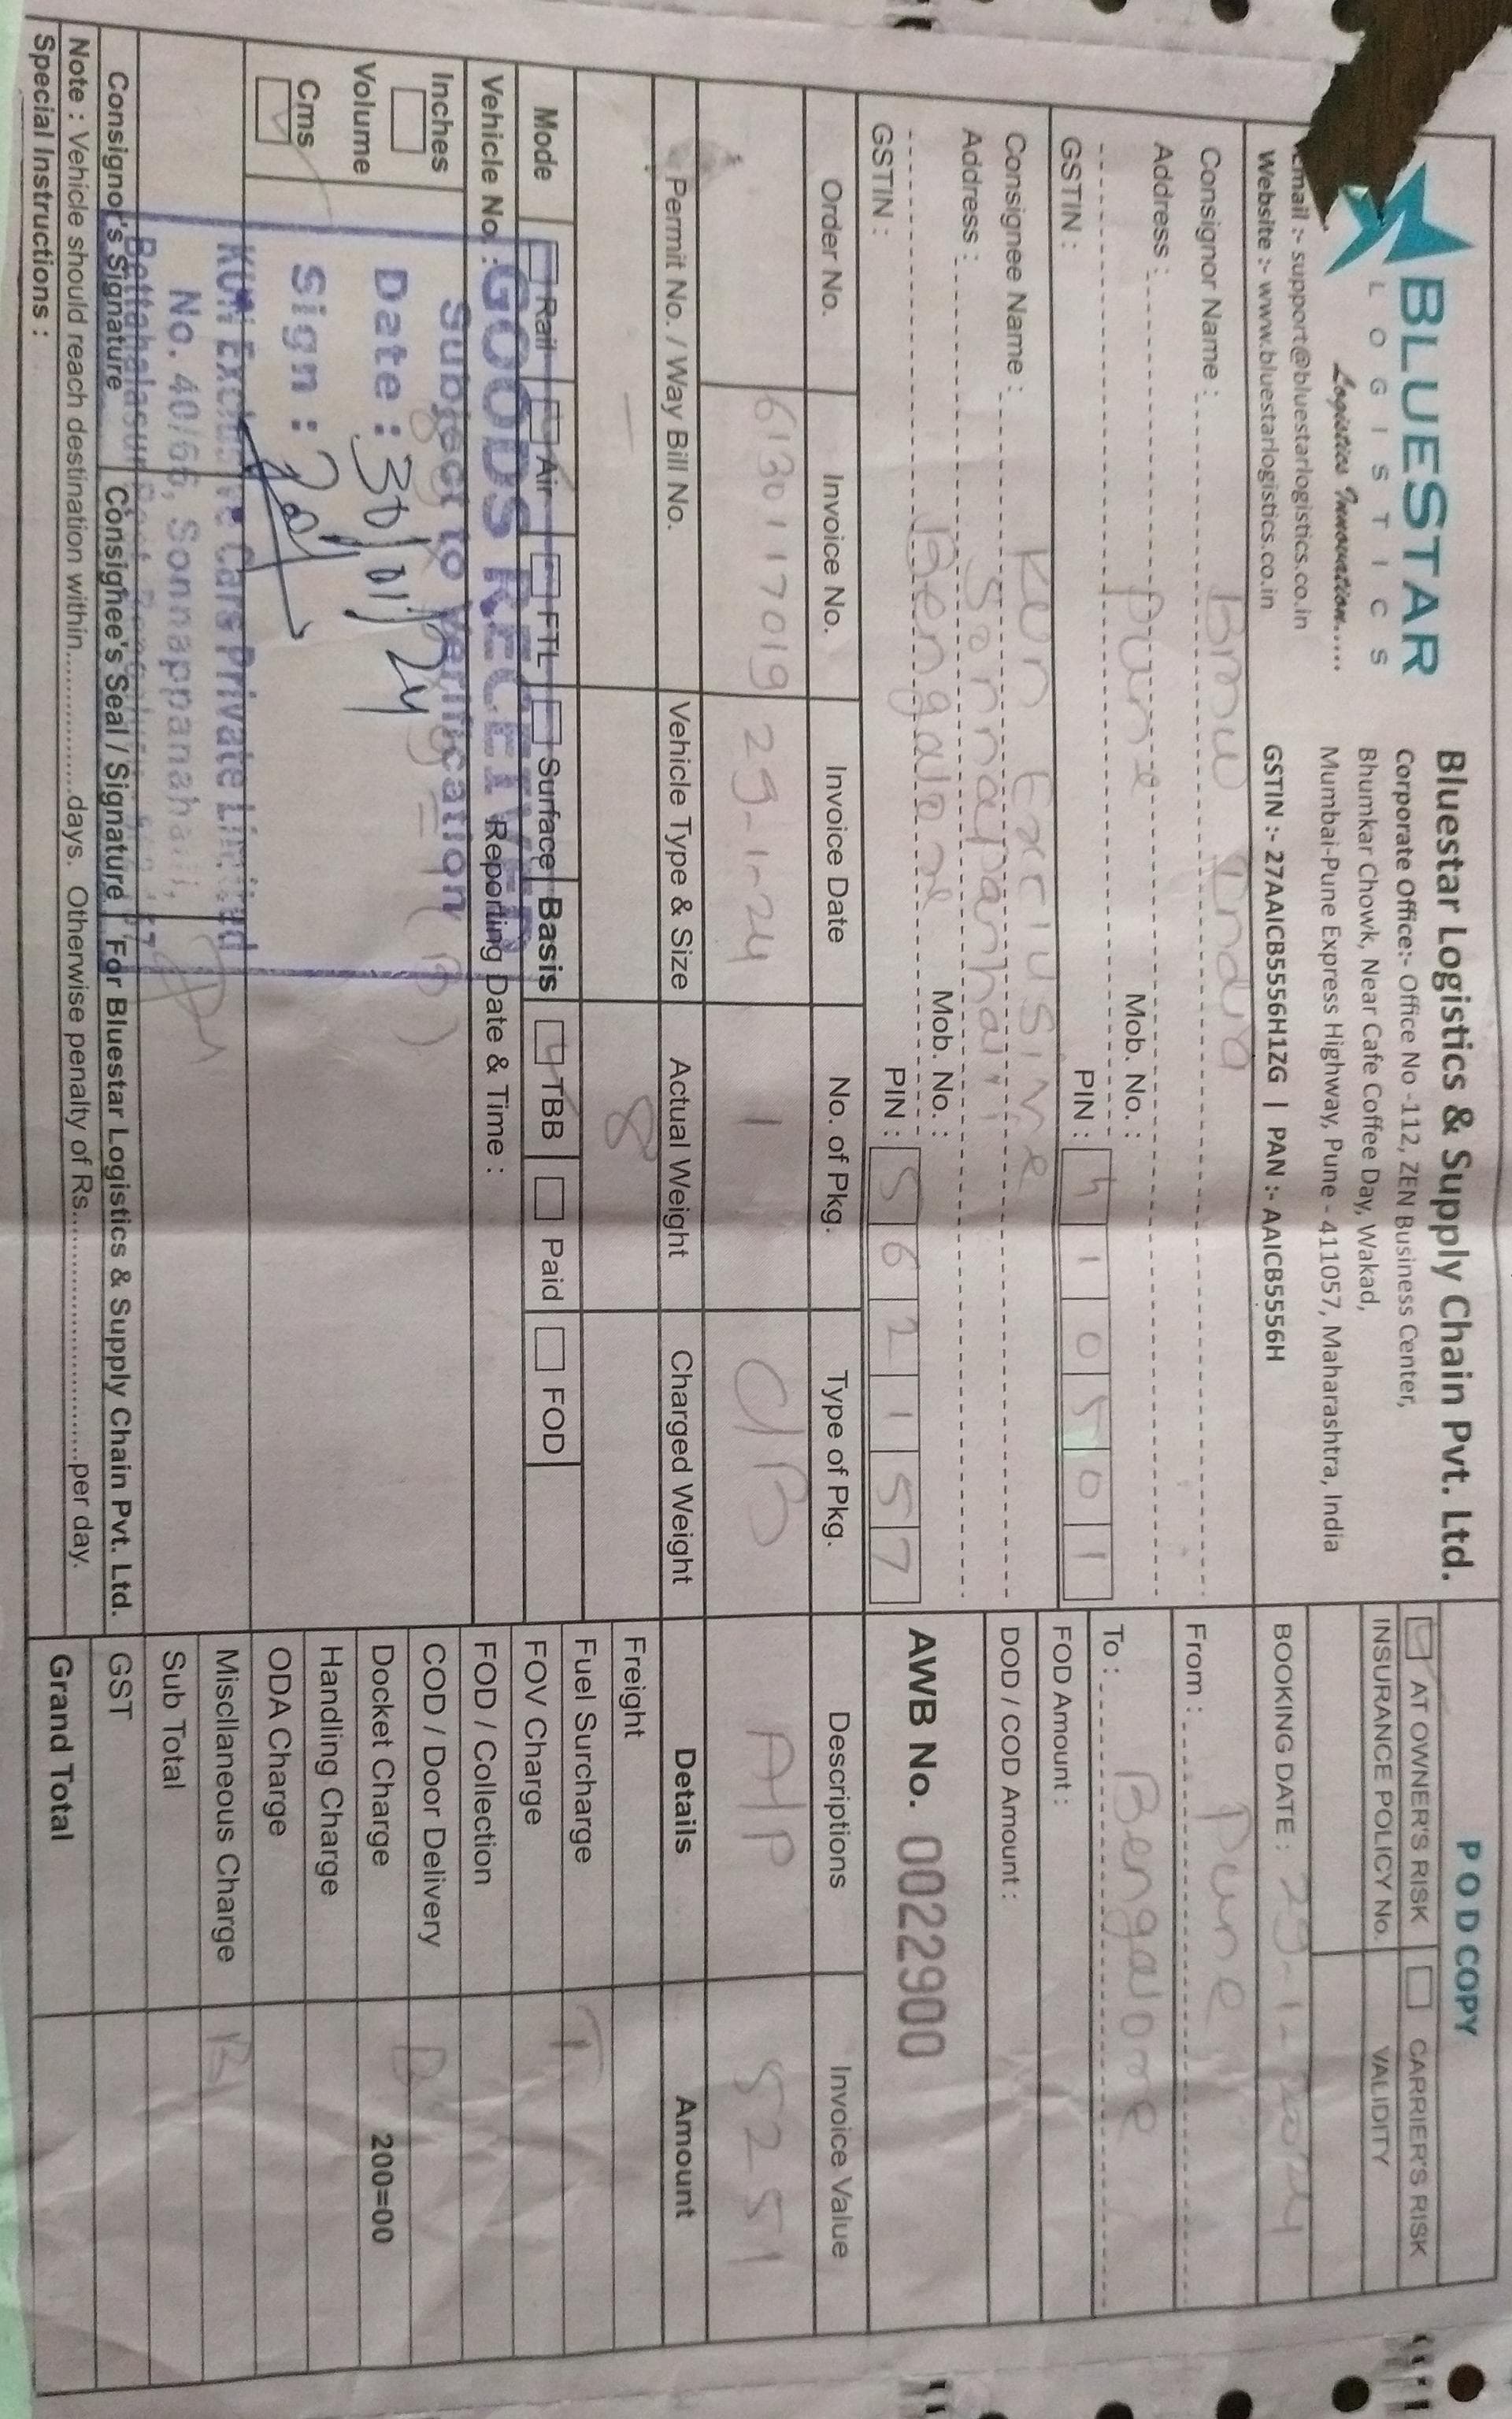 BLUESTAR
LOGISTICS
Logistics Innovation.....
Email :- support@bluestarlogistics.co.in
Website :- www.bluestarlogistics.co.in
Bluestar Logistics & Supply Chain Pvt. Ltd.
Corporate Office:- Office No -112, ZEN Business Center,
Bhumkar Chowk, Near Cafe Coffee Day, Wakad,
Mumbai-Pune Express Highway, Pune - 411057, Maharashtra, India
GSTIN :- 27AAICB5556H1ZG | PAN :- AAICB5556H
POD COPY
AT OWNER'S RISK CARRIER'S RISK
INSURANCE POLICY No. VALIDITY
BOOKING DATE : 29-1-2024
Consignor Name : BMW India
Address :
Pune Mob. No. :
GSTIN : PIN : 410501
From : Pune
To : Bengalore
FOD Amount :
DOD / COD Amount :
Consignee Name : KUN Exclusive
Address :
Bengalore Mob. No. :
GSTIN : PIN : 562157
AWB No. 0022900
Order No. Invoice No. Invoice Date No. of Pkg. Type of Pkg. Descriptions Invoice Value
6130117019 29-1-24 1 C/B A/P 5251
Permit No. / Way Bill No. Vehicle Type & Size Actual Weight Charged Weight Details Amount
— 8
Freight
Fuel Surcharge T
FOV Charge
FOD / Collection
COD / Door Delivery B
Docket Charge 200=00
Handling Charge
ODA Charge
Miscllaneous Charge B
Sub Total
GST
Grand Total
Mode Rail Air FTL Surface Basis TBB Paid FOD
Vehicle No. : Reporting Date & Time :
Inches
Volume
Cms
GOODS RECEIVED
Subject to Verification
Date : 30/01/24
Sign :
KUN Exclusive Cars Private Limited
No. 40/66, Sonnappanahalli,
Bettahalasur Post, Bengaluru - 562 157
Consignor's Signature Consighee's Seal / Signature For Bluestar Logistics & Supply Chain Pvt. Ltd.
Note : Vehicle should reach destination within.................days. Otherwise penalty of Rs..............................per day.
Special Instructions :